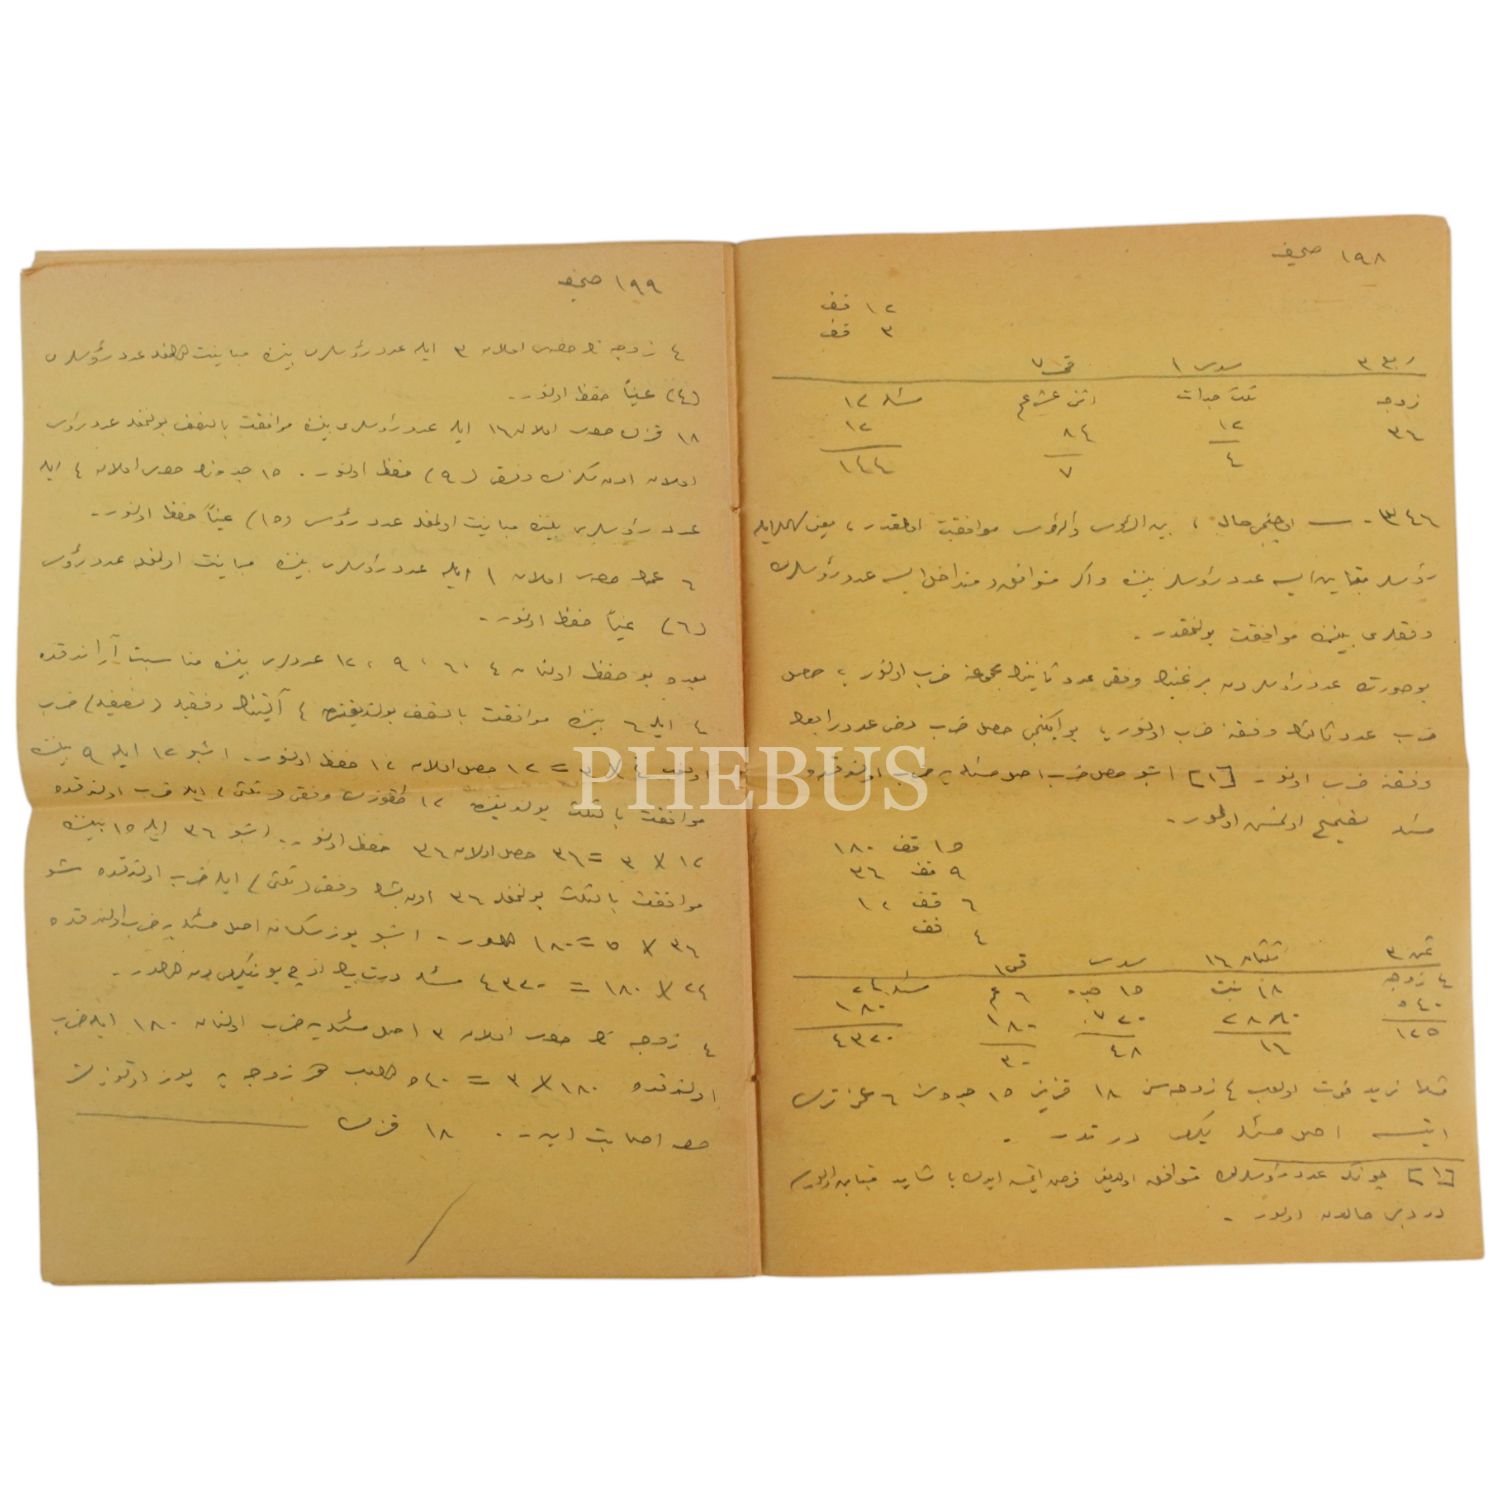 ١٩٨ صحيفه
١٢ قف
٣ قف
ربع ٣ سدس ١ قى ٧
زوجه ثلث جدات اثنى عشر عم مسئله ١٢
٣٦ ١٢ ٨٤ ١٢
٤ ٧ ١٤٤
٣٤٦ - بين الرؤس والرؤس موافقت اولمقدر ، يعنى
رؤسلر متباين ايسه عدد رؤسلر بيننده واكر متوافق ومتداخل ايسه عدد رؤسلرك
وفقلرى بيننده موافقت بولنمقدر .
بوصورتده عدد رؤسلردن برينك وفقى عدد ثانينك مجموعنه ضرب اولنور ، حاصل
ضرب عدد ثالثك وفقنه ضرب اولنور ، بو ايكنجى حاصل ضرب دخى عدد رابعك
وفقنه ضرب اولنور - [١] اشبو حاصل ضرب اصل مسئله يه ضرب اولندقده
مسئله تصحيح اولنمش اولور .
١٥ قف ١٨٠
٩ قف ٣٦
٦ قف ١٢
٤ قف
ثمن ٣ ثلثان ١٦ سدس قى ١
٤ زوجه ١٨ بنت ١٥ جده ٦ عم مسئله ٢٤
٥٤٠ ٢٨٨٠ ٧٢٠ ١٨٠ ١٨٠
١٣٥ ١٦ ٤٨ ٣٠ ٤٣٢٠
مثلا زيد فوت اولوب ٤ زوجه سنى ١٨ قيزينى ١٥ جده سنى ٦ عمنى ترك
ايتسه اصل مسئله يكرمى دورتدر .
[١] چونكه عدد رؤسلرك متوافق اولديغى فرض
اولور .
١٩٩ صحيفه
٤ زوجه نك حصه سى اولان ٣ ايله عدد رؤسلرى بيننده مباينت اولمغله عدد رؤسلرى
(٤) عيناً حفظ اولنور .
١٨ قيزك حصه سى اولان ١٦ ايله عدد رؤسلرى بيننده موافقت بالنصف بولنمغله عدد رؤس
اولان اون سكزك وفقى (٩) حفظ اولنور . ١٥ جده نك حصه سى اولان ٤ ايله
عدد رؤسلرى بيننده مباينت اولمغله عدد رؤس (١٥) عيناً حفظ اولنور .
٦ عمك حصه سى اولان ١ ايله عدد رؤسلرى بيننده مباينت اولمغله عدد رؤس
(٦) عيناً حفظ اولنور .
بعده بو حفظ اولنان ٤ ، ٦ ، ٩ ، ١٢ عددلرى بيننده مناسبت آراندقده
٤ ايله ٦ بيننده موافقت بالنصف بولنديغندن ٤ آلتينك وفقيله (نصفيله) ضرب
اولنوب ٤ × ٣ = ١٢ حاصل اولان ١٢ حفظ اولنور . اشبو ١٢ ايله ٩ بيننده
موافقت بالثلث بولنديغندن ١٢ طقوزك وفقى (ثلثى) ايله ضرب اولندقده
١٢ × ٣ = ٣٦ حاصل اولان ٣٦ حفظ اولنور . اشبو ٣٦ ايله ١٥ بيننده
موافقت بالثلث بولنمغله ٣٦ اون بشك وفقى (ثلثى) ايله ضرب اولندقده شو
٣٦ × ٥ = ١٨٠ اولور . اشبو يوز سكسان اصل مسئله يه ضرب اولندقده
٢٤ × ١٨٠ = ٤٣٢٠ مسئله درت بيك اوچ يوز يكرميدن
٤ زوجه نك حصه سى اولان ٣ اصل مسئله يه ضرب اولنان ١٨٠ ايله ضرب
اولندقده ١٨٠ × ٣ = ٥٤٠ اولوب هر زوجه يه يوز اوتوز بش
حصه اصابت ايدر . ١٨ قيزك
PHEBUS